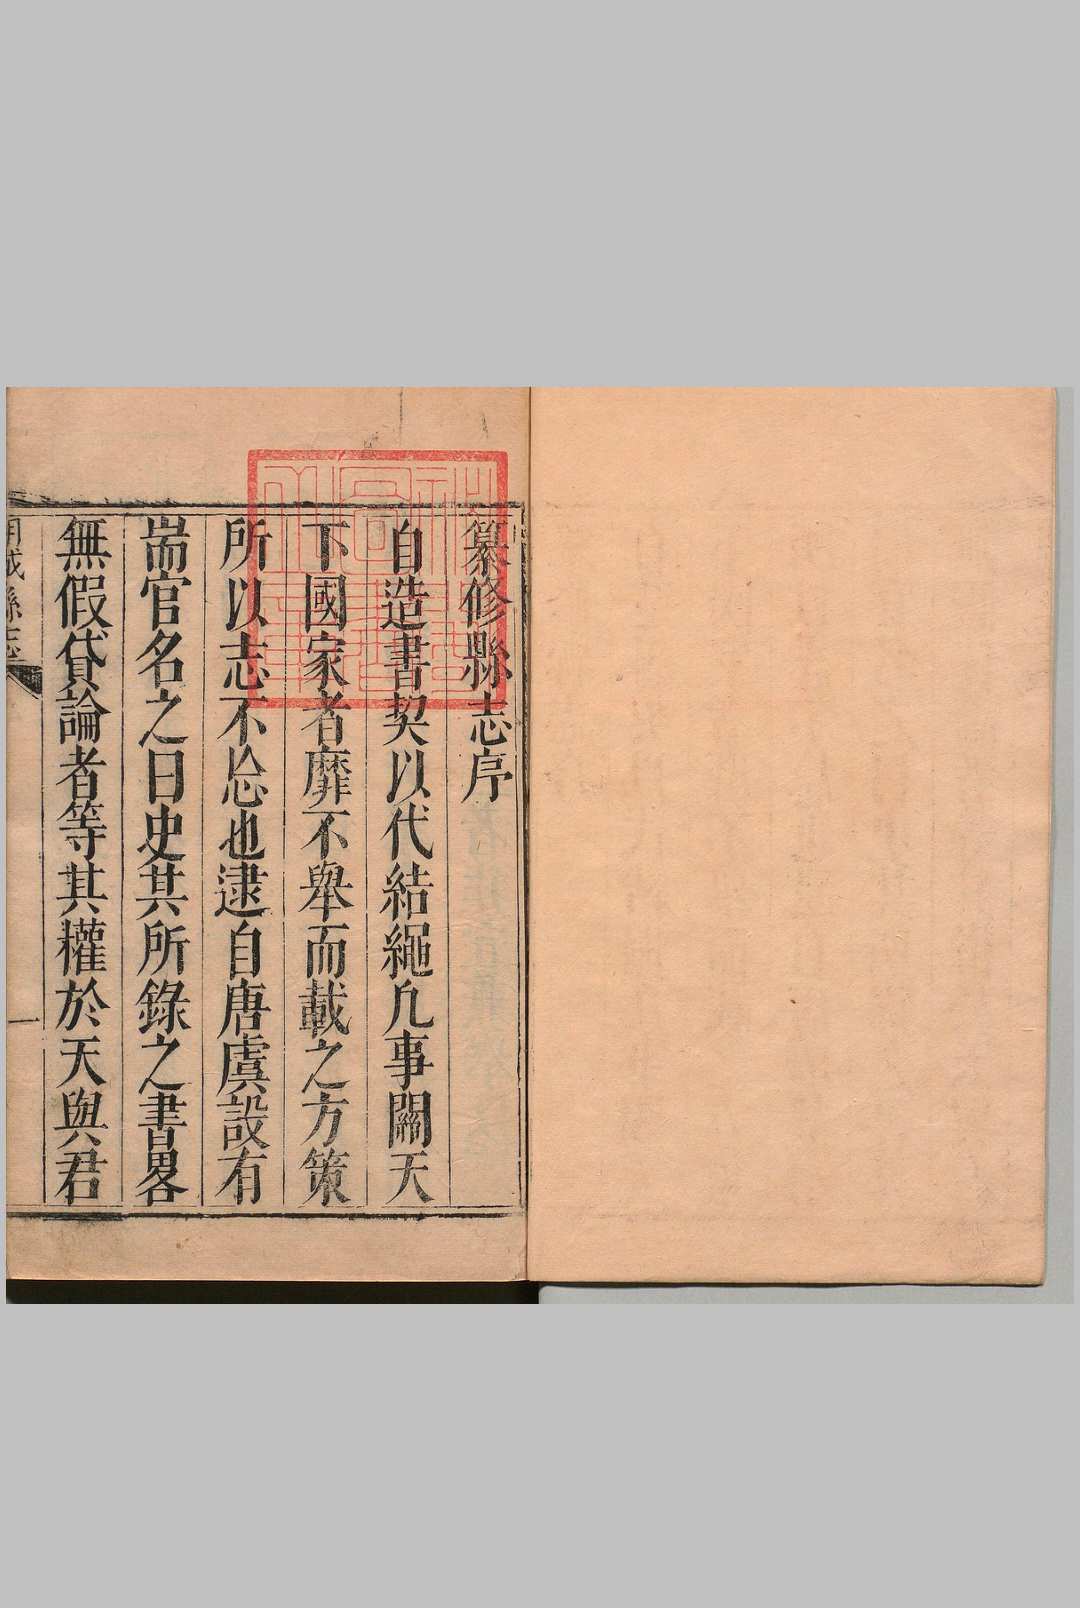 纂修縣志序
自造書契以代結繩凢事關天
下國家者靡不舉而載之方策
所以志不忘也逮自唐虞設有
耑官名之曰史其所錄之書畧
無假貸論者等其權於天與君
縣志
一